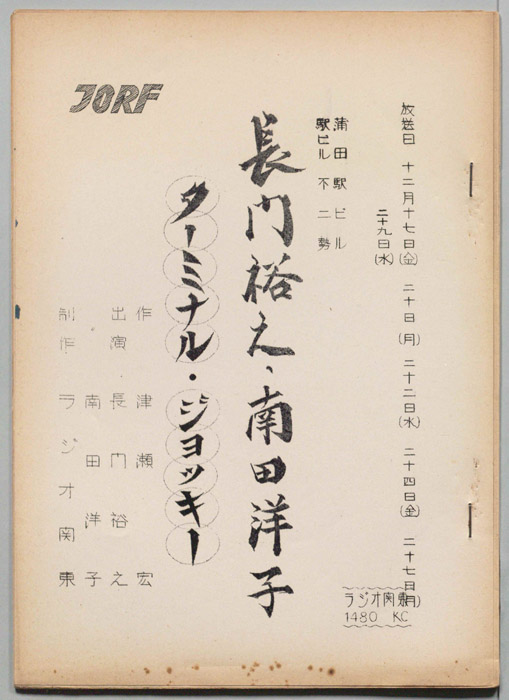 JORF
放送日 十二月十七日(金) 二十日(月) 二十二日(水) 二十四日(金) 二十七日(月)
二十九日(水)
蒲田駅ビル
駅ビル不二勢
長門裕之、南田洋子
ターミナル・ジョッキー
作 津瀬宏
出演 長門裕之
南田洋子
制作 ラジオ関東
ラジオ関東
1480 KC